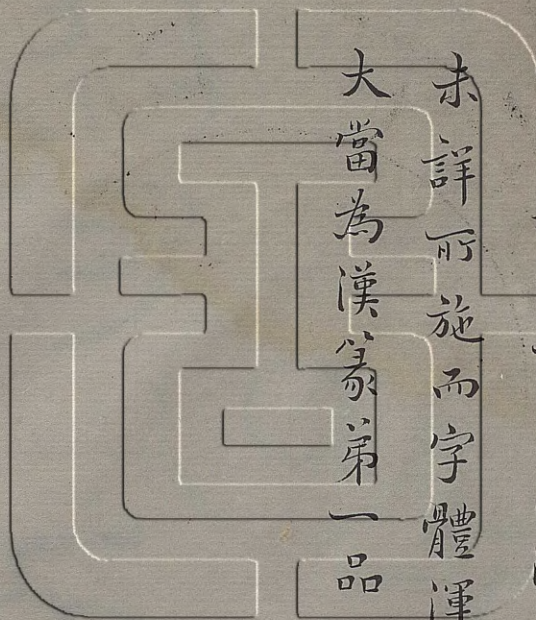 未詳所施而字體渾
大當為漢篆第一品